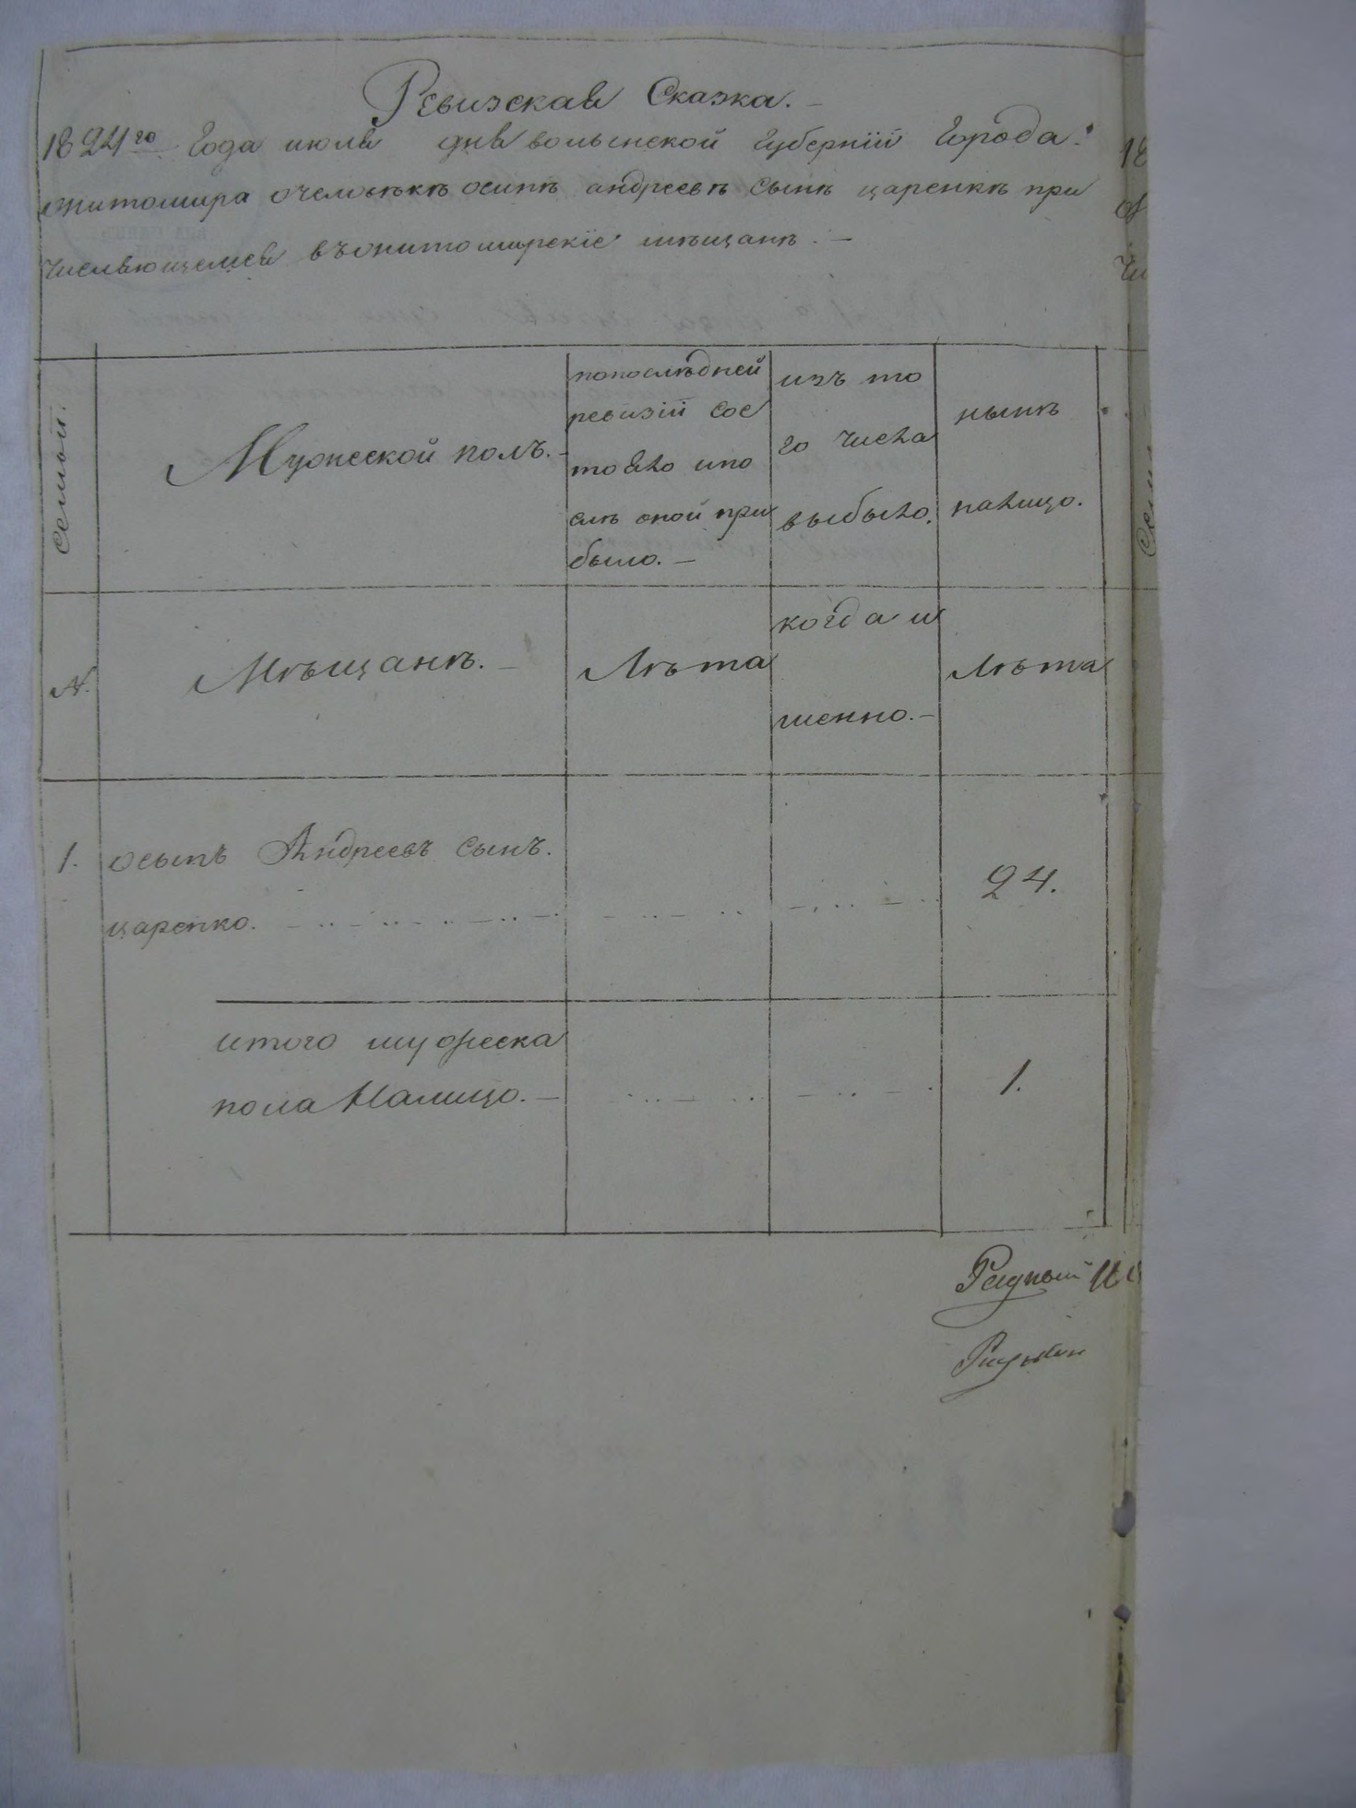 Ревизская Сказка. —
1824го Года июля дня волынской губерніи Города
житомира очеловекѣ осипѣ андреевѣ сынѣ царенкѣ при
числяющемся въжитомирскіе мѣщанѣ. —
Семьи.
Мужеской полъ. —
попослѣдней
ревизіи сос
тояло ипо
слѣ оной при
было. —
изъ то
го числа
выбыло.
нынѣ
налицо.
N.
Мѣщанѣ. —
Лѣта
когда и
менно. —
Лѣта
1. осыпъ Андреевъ сынъ.
царенко. 24.
итого мужеска
пола Налицо. — 1.